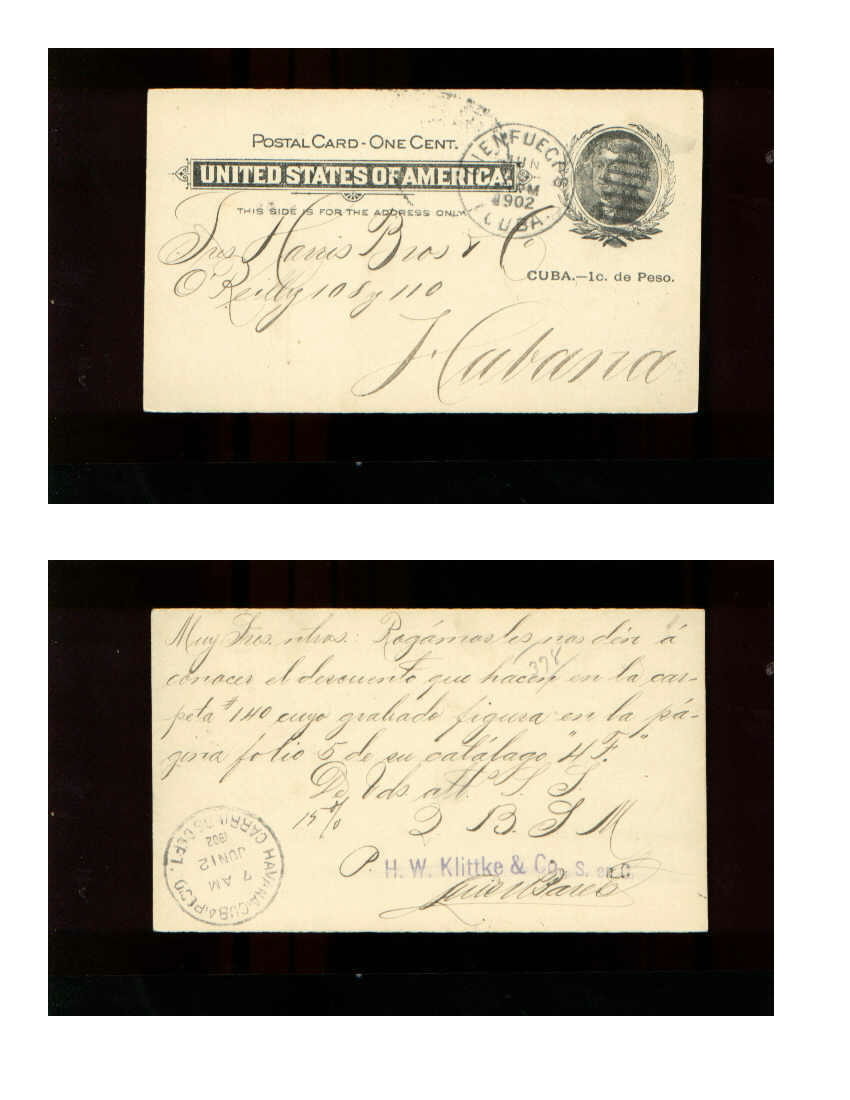 POSTAL CARD - ONE CENT.
UNITED STATES OF AMERICA.
THIS SIDE IS FOR THE ADDRESS ONLY
IENFUEGOS
JUN
AM
1902
CUBA.
CUBA.—1c. de Peso.
Sres Harris Bros & Co
O'Reilly 108 y 110
Habana
Muy Sres. ntros: Rogámosles nos dén á
conocer el descuento que hacen en la car-
peta #140 cuyo grabado figura en la pá-
gina folio 5 de su catálago "4 F."
De Vds att. S. S.
15%
Q B. S M
P. H. W. Klittke & Co., S. en C.
HAVANA, CUBA
CARRIERS DEPT.
7 AM
JUN 12
1902